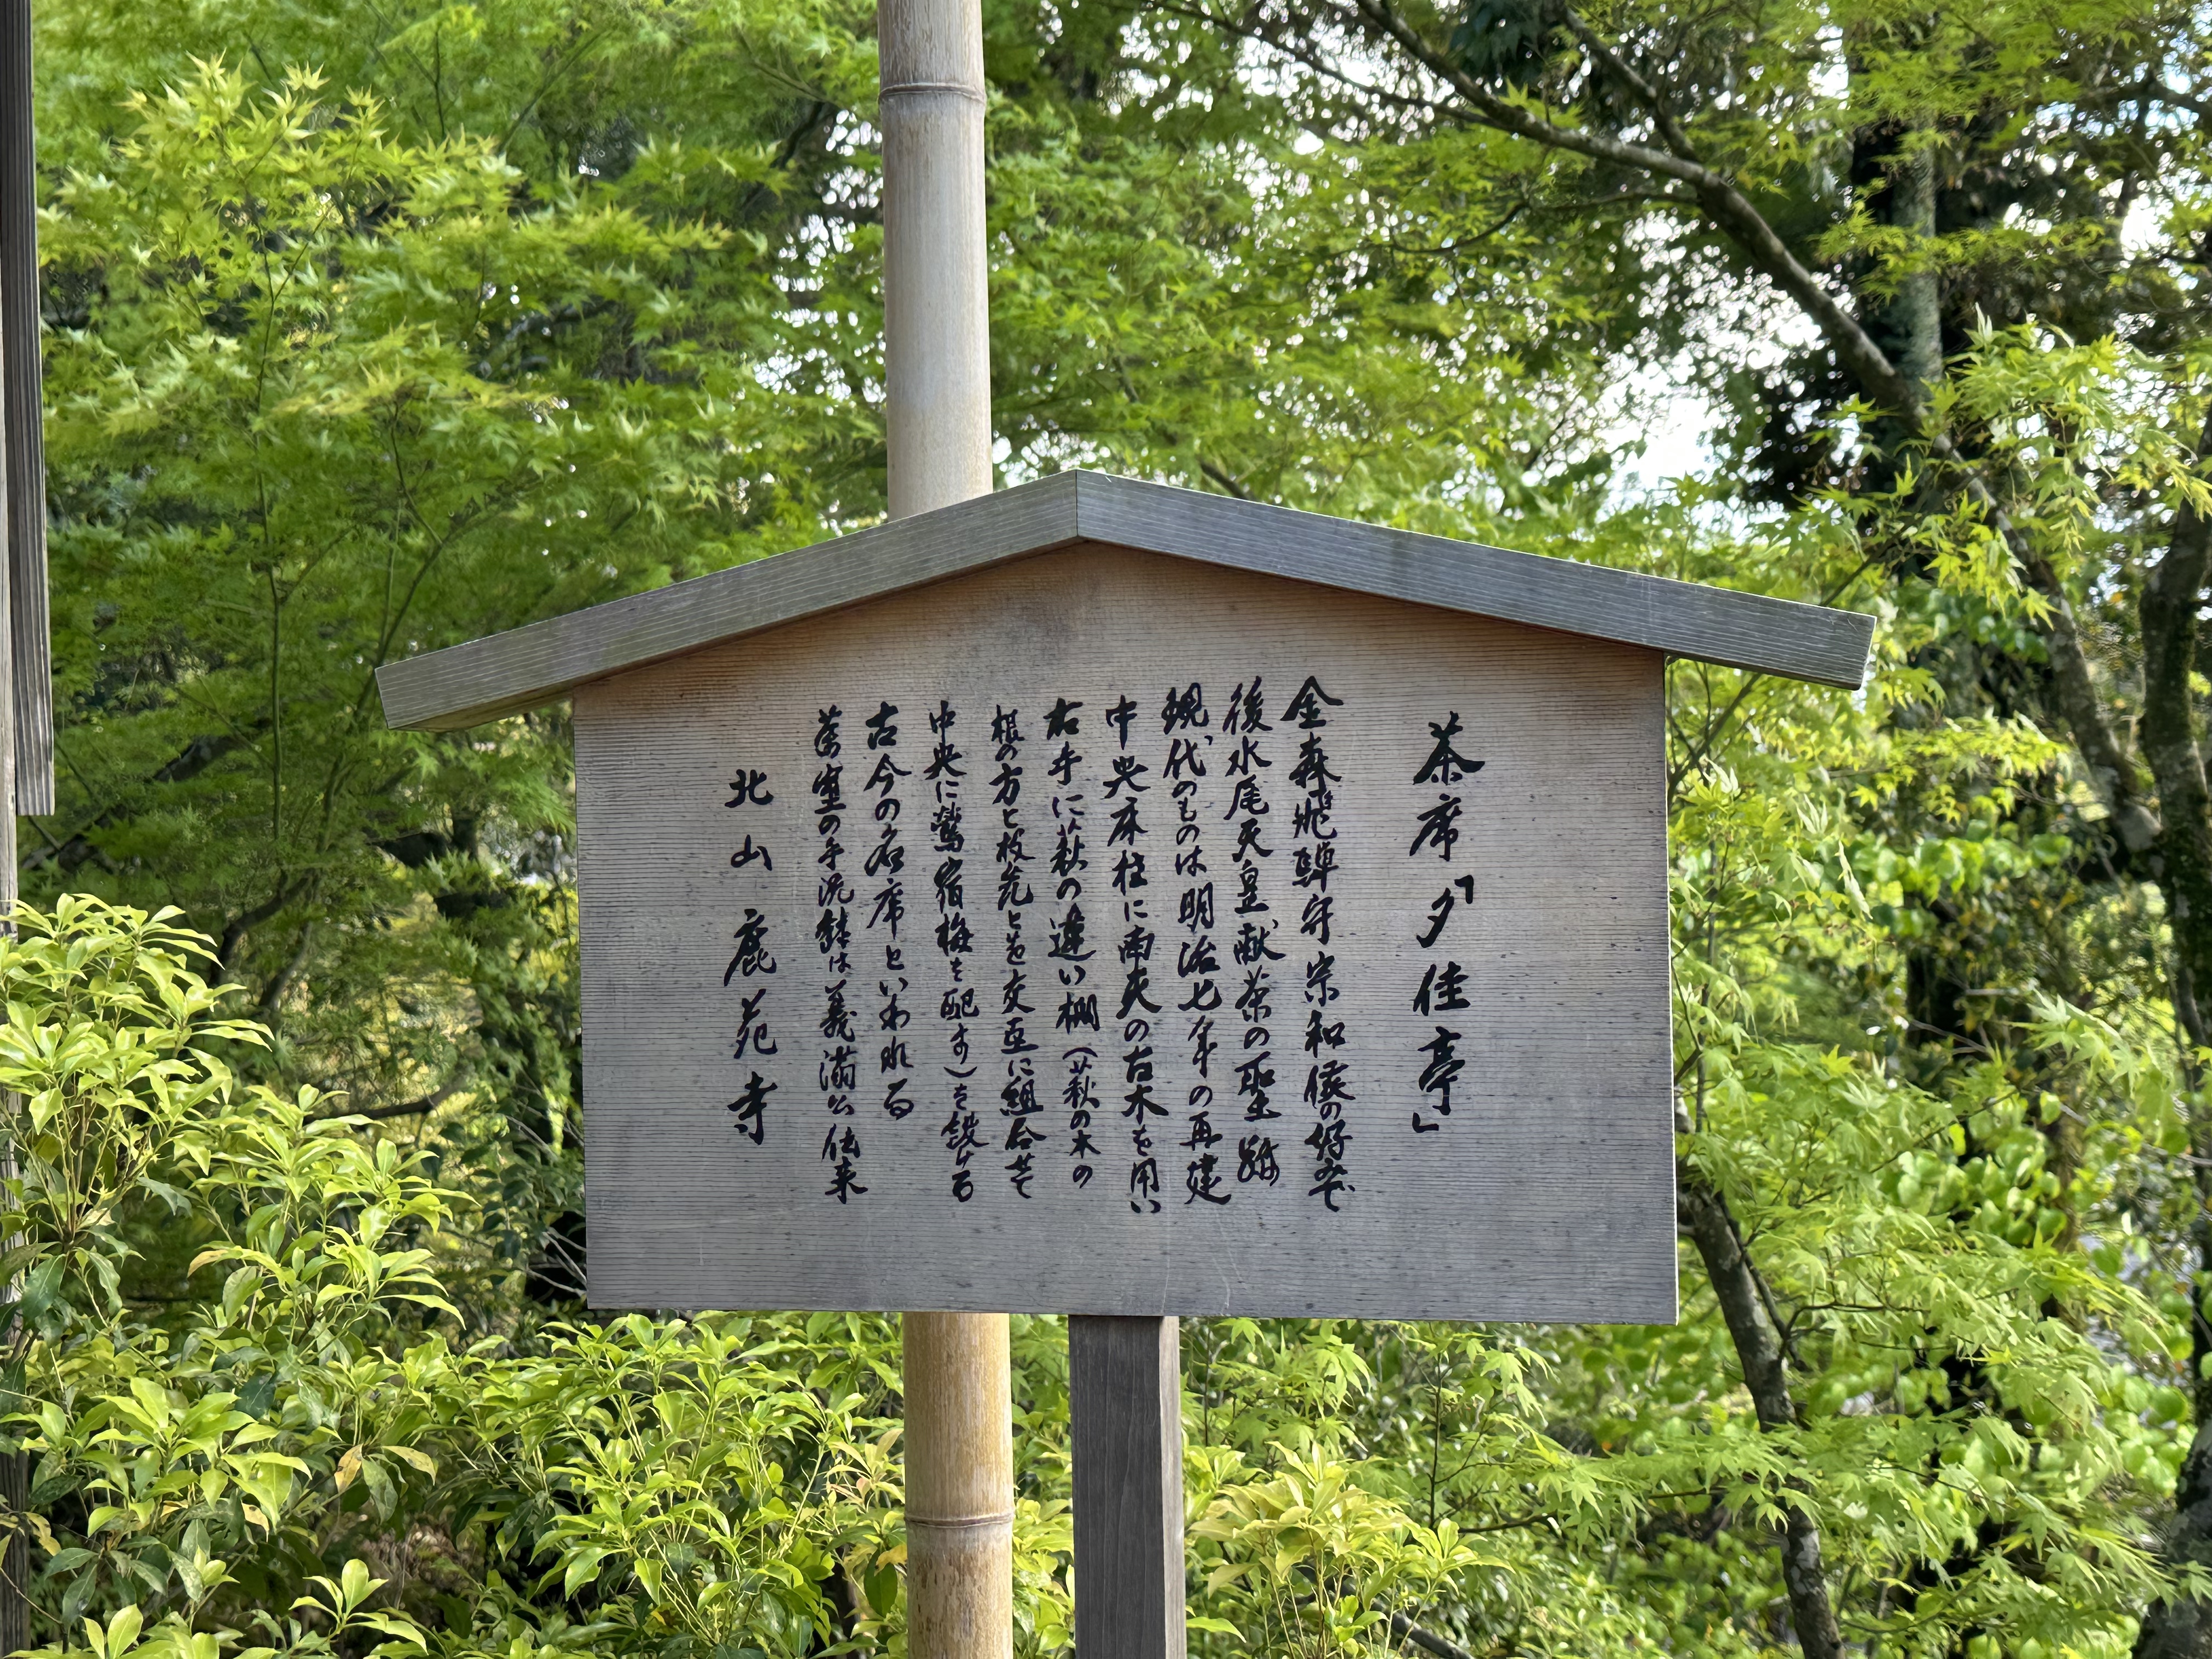 茶席「夕佳亭」
金森飛騨守宗和侯の好みで
後水尾天皇献茶の聖跡
現代のものは明治七年の再建
中央床柱に南天の古木を用い
右手に萩の違い棚（萩の木の
根の方と枝先とを交互に組合せて
中央に鶯宿梅を配す）を設ける
古今の名席といわれる
茶室の手洗鉢は義満公伝来
北山 鹿苑寺